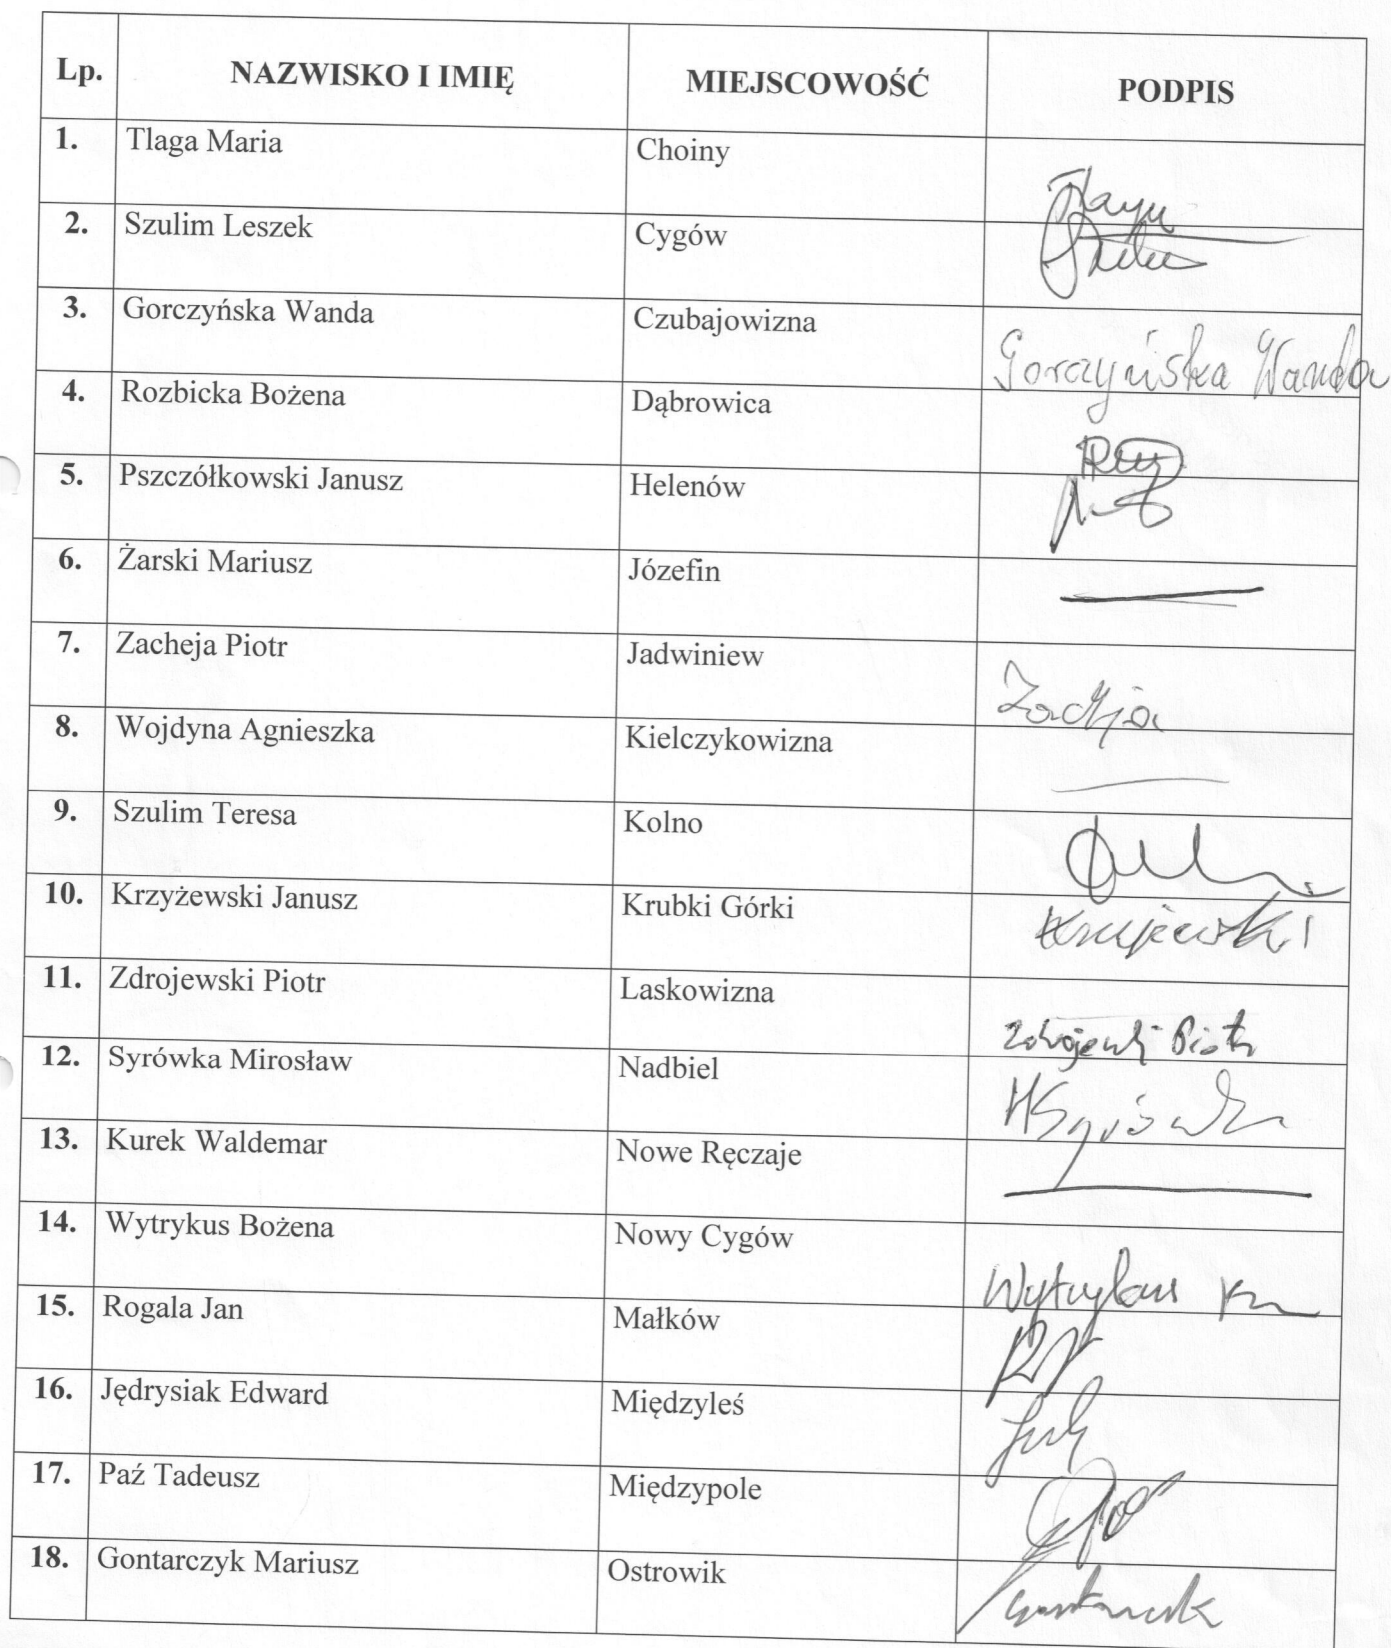 Lp. NAZWISKO I IMIĘ MIEJSCOWOŚĆ PODPIS
1. Tlaga Maria Choiny
2. Szulim Leszek Cygów
3. Gorczyńska Wanda Czubajowizna Gorczyńska Wanda
4. Rozbicka Bożena Dąbrowica
5. Pszczółkowski Janusz Helenów
6. Żarski Mariusz Józefin
7. Zacheja Piotr Jadwiniew
8. Wojdyna Agnieszka Kielczykowizna
9. Szulim Teresa Kolno
10. Krzyżewski Janusz Krubki Górki
11. Zdrojewski Piotr Laskowizna
12. Syrówka Mirosław Nadbiel
13. Kurek Waldemar Nowe Ręczaje
14. Wytrykus Bożena Nowy Cygów
15. Rogala Jan Małków
16. Jędrysiak Edward Międzyleś
17. Paź Tadeusz Międzypole
18. Gontarczyk Mariusz Ostrowik